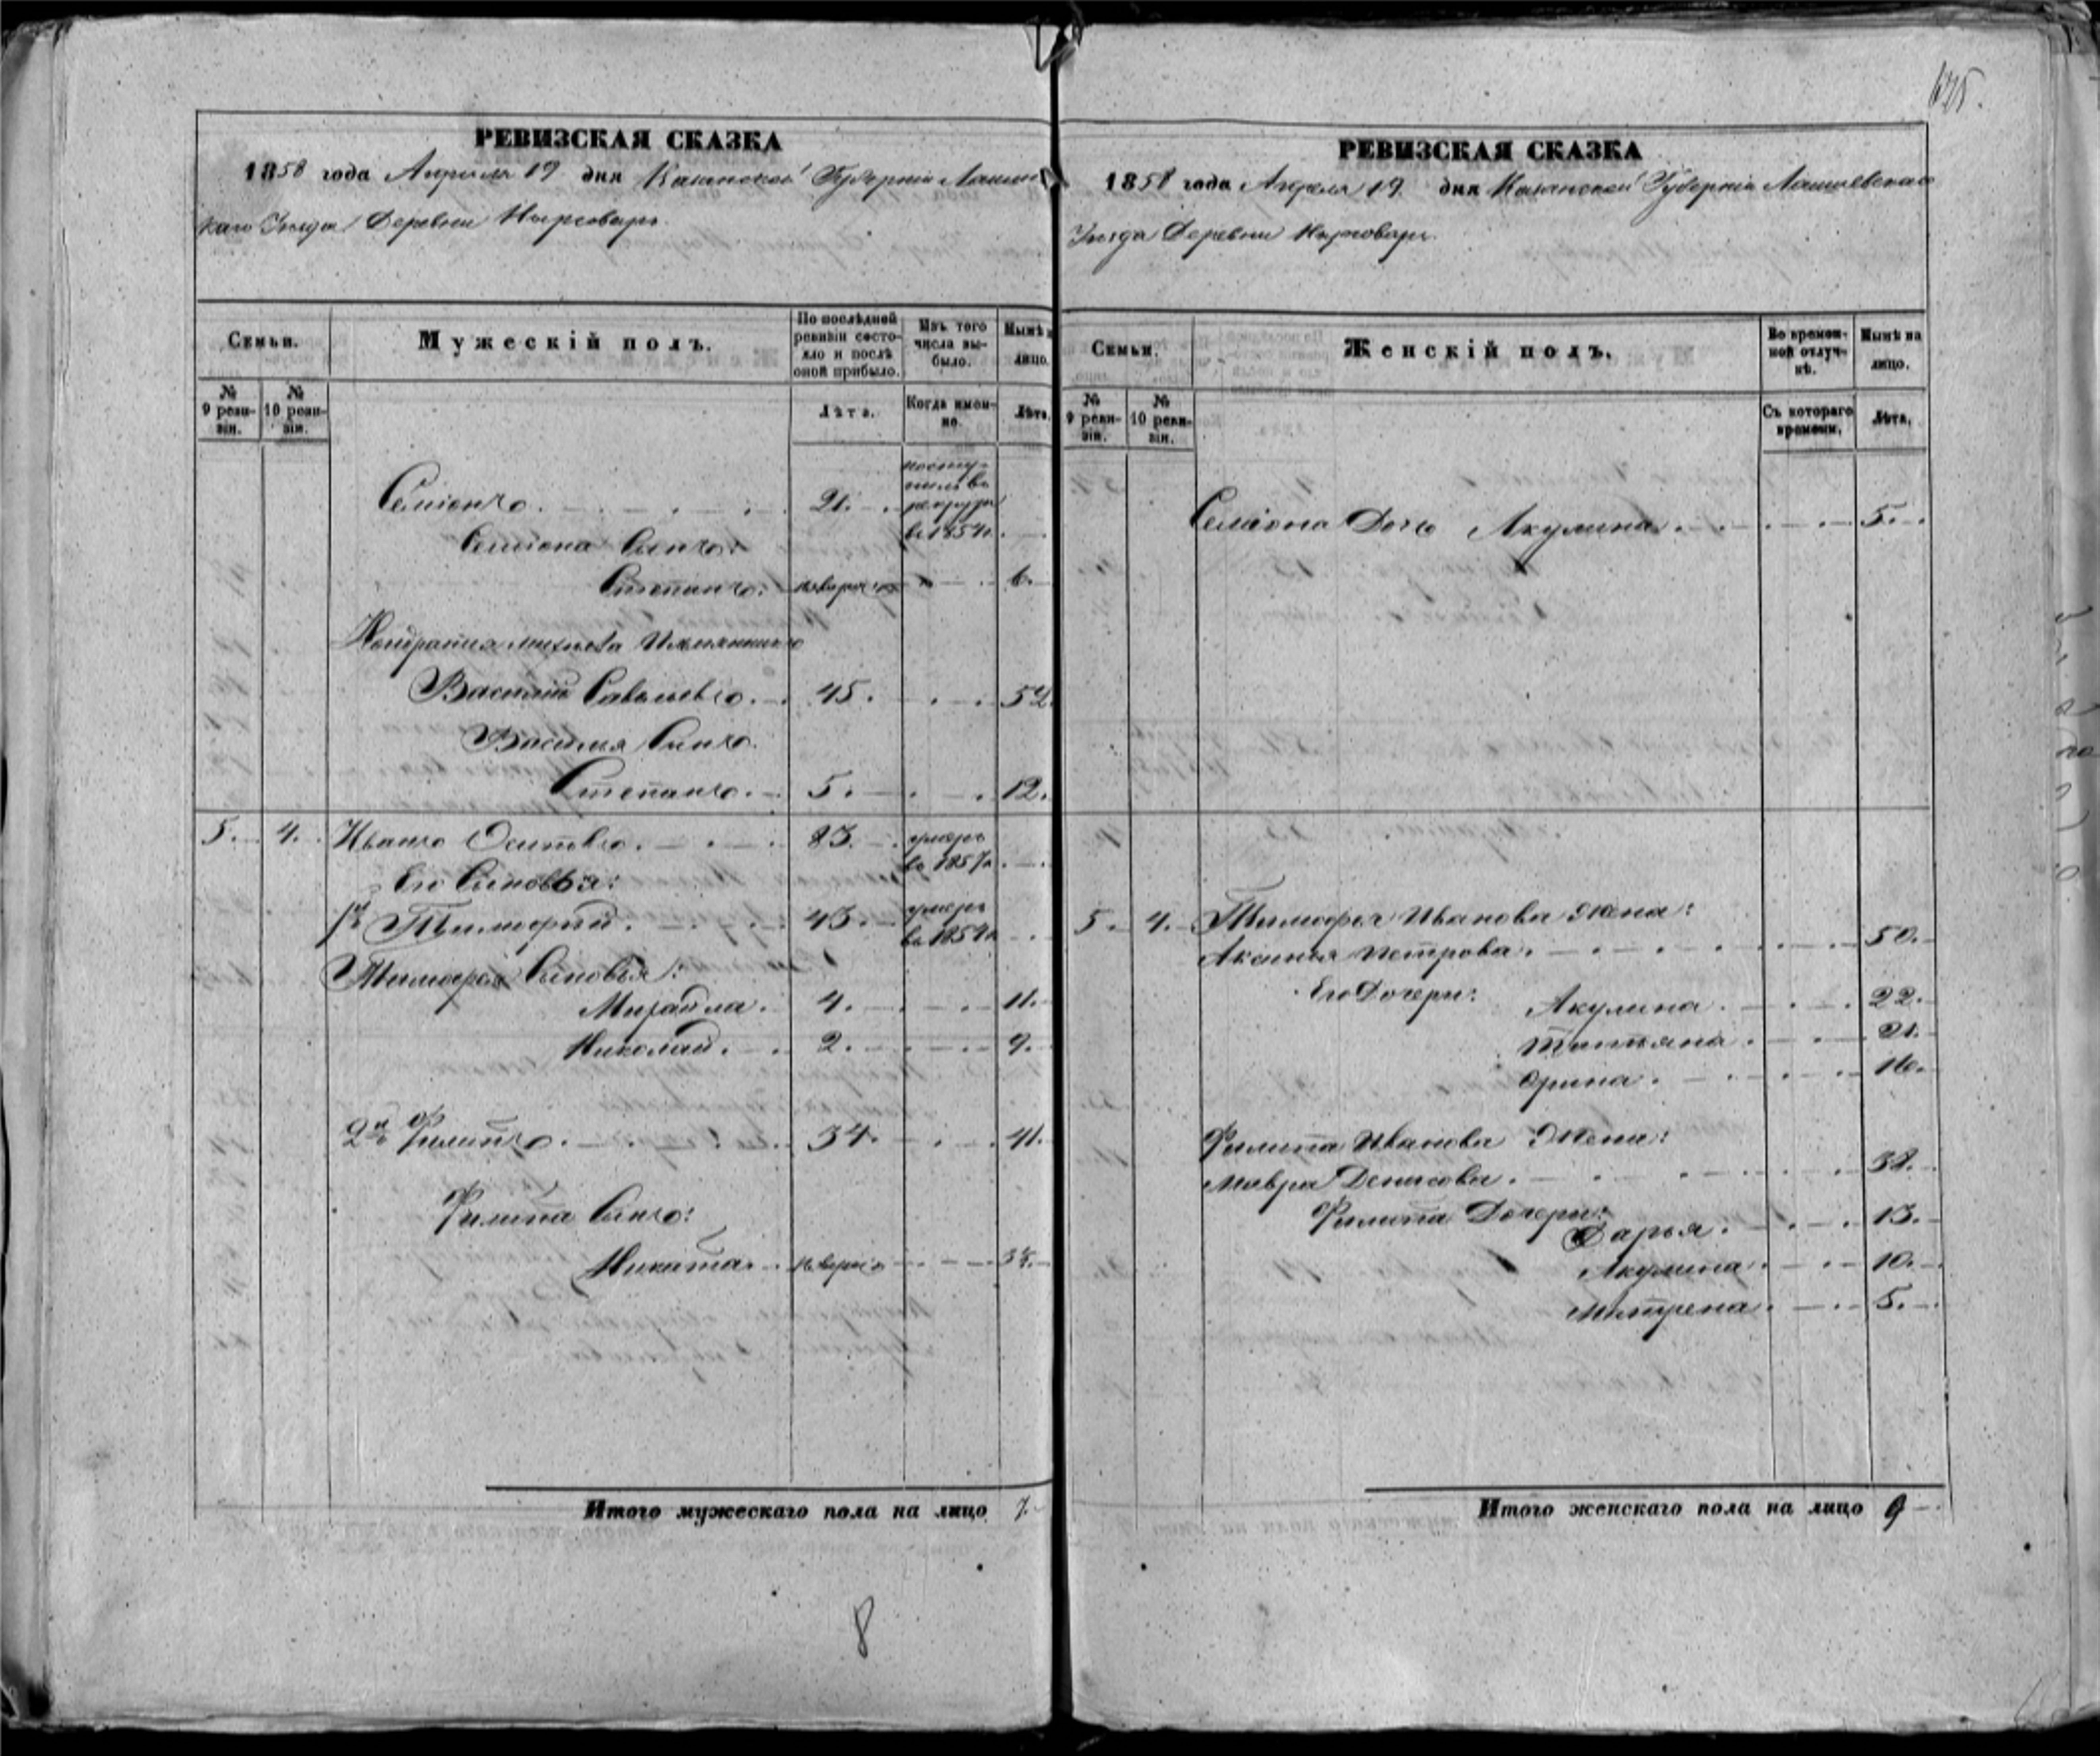 645.
РЕВИЗСКАЯ СКАЗКА
1858 года Апреля 19 дня Казанской Губерніи Лаишев
каго Уѣзда Деревни Нырсовары
Семьи.
Мужескій полъ.
По послѣдней ревизіи состояло и послѣ оной прибыло.
Изъ того числа выбыло.
Нынѣ на лицо.
№ 9 ревизіи.
№ 10 ревизіи.
Лѣта.
Когда именно.
Лѣта.
Семіонъ. 21. посту-
пилъ въ
рекруты
въ 1854г.
Семіона Сынъ:
Степанъ: 6.
Кондратія Племянникъ
Василій Савельевъ. 45. 52.
Василья Сынъ.
Степанъ. 5. 12.
5. 4. Иванъ Осиповъ. 83. умеръ
въ 1857г.
Его Сыновья:
1й Тимофей. 43. умеръ
въ 1854г.
Тимофея Сыновья:
Михайла. 4. 11.
Николай. 2. 9.
2й Филипъ. 34. 41.
Филипа Сынъ:
Никита.
Итого мужескаго пола на лицо 7.
8
РЕВИЗСКАЯ СКАЗКА
1858 года Апреля 19 дня Казанской Губерніи Лаишевскаго
Уѣзда Деревни Нырсовары.
Семьи.
Женскій полъ.
Во временной отлучкѣ.
Нынѣ на лицо.
№ 9 ревизіи.
№ 10 ревизіи.
Съ котораго времени.
Лѣта.
Семіона Дочь Акулина. 5.
5. 4. Тимофея Иванова Жена:
Аксинья Петрова. 50.
Его Дочери: Акулина. 22.
Татьяна. 21.
Орина. 16.
Филипа Иванова Жена:
Мавра Денисова. 38.
Филипа Дочери:
Дарья. 13.
Акулина. 10.
Матрена. 5.
Итого женскаго пола на лицо 9